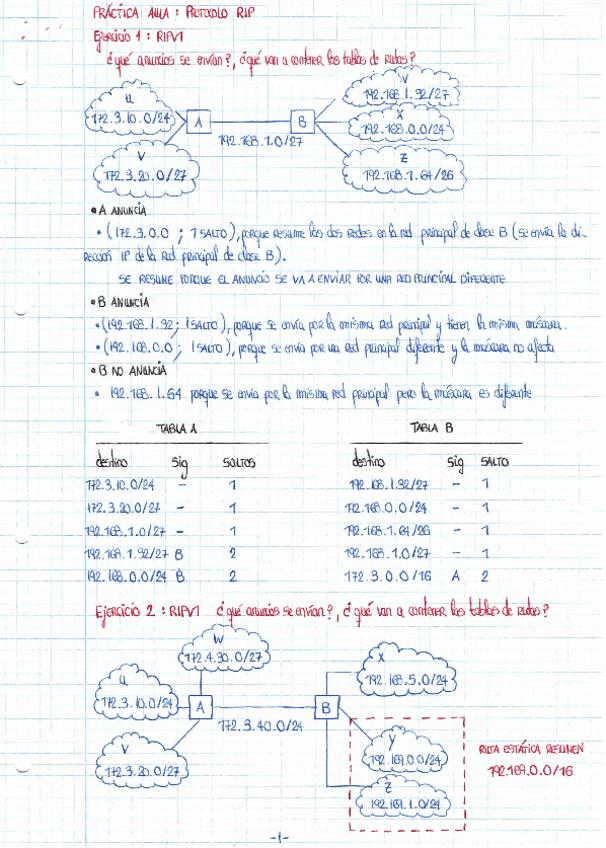 PRÁCTICA AULA: PROTOCOLO RIP
EJERCICIO 1: RIPV1
¿qué anuncios se envían?, ¿qué van a contener las tablas de rutas?
U
172.3.10.0/24
V
172.3.20.0/27
A
192.168.1.0/27
B
Y
192.168.1.32/27
X
192.168.0.0/24
Z
192.168.1.64/26
• A ANUNCIA
• (172.3.0.0 ; 1 SALTO), porque resume las dos redes en la red principal de clase B (se envía la di-
rección IP de la red principal de clase B).
SE RESUME PORQUE EL ANUNCIO SE VA A ENVIAR POR UNA RED PRINCIPAL DIFERENTE
• B ANUNCIA
• (192.168.1.32; 1 SALTO), porque se envía por la misma red principal y tienen la misma máscara.
• (192.168.0.0; 1 SALTO), porque se envía por una red principal diferente y la máscara no afecta
• B NO ANUNCIA
• 192.168.1.64 porque se envía por la misma red principal pero la máscara es diferente
TABLA A
destino sig SALTOS
172.3.10.0/24 - 1
172.3.20.0/27 - 1
192.168.1.0/27 - 1
192.168.1.32/27 B 2
192.168.0.0/24 B 2
TABLA B
destino sig SALTO
192.168.1.32/27 - 1
192.168.0.0/24 - 1
192.168.1.64/26 - 1
192.168.1.0/27 - 1
172.3.0.0/16 A 2
EJERCICIO 2: RIPV1 ¿qué anuncios se envían?, ¿qué van a contener las tablas de rutas?
W
172.4.30.0/27
U
172.3.10.0/24
V
172.3.20.0/27
A
172.3.40.0/24
B
X
192.168.5.0/24
Y
192.169.0.0/24
Z
192.169.1.0/24
RUTA ESTÁTICA RESUMEN
192.169.0.0/16
-1-